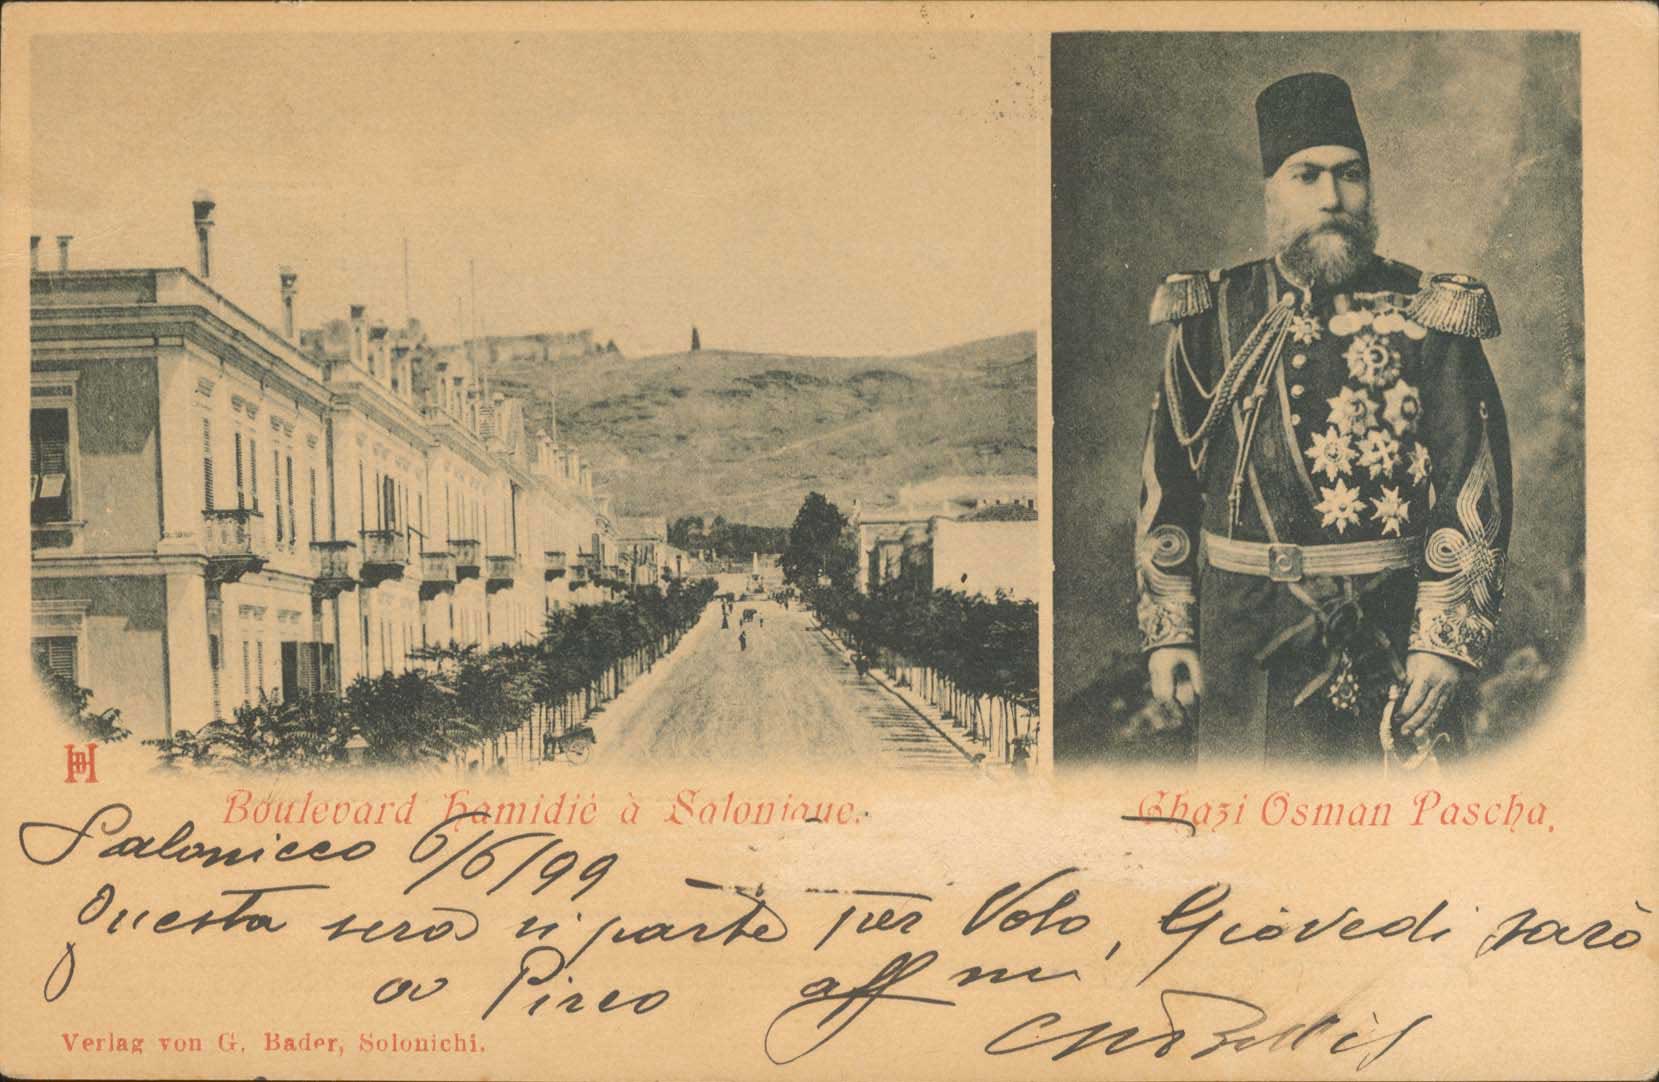 HB
Boulevard Hamidié à Salonique.
Ghazi Osman Pascha,
Salonicco 6/6/99
Questa sera si parte per Volo, Giovedi sarò
a Pireo affmo
Verlag von G. Bader, Solonichi.